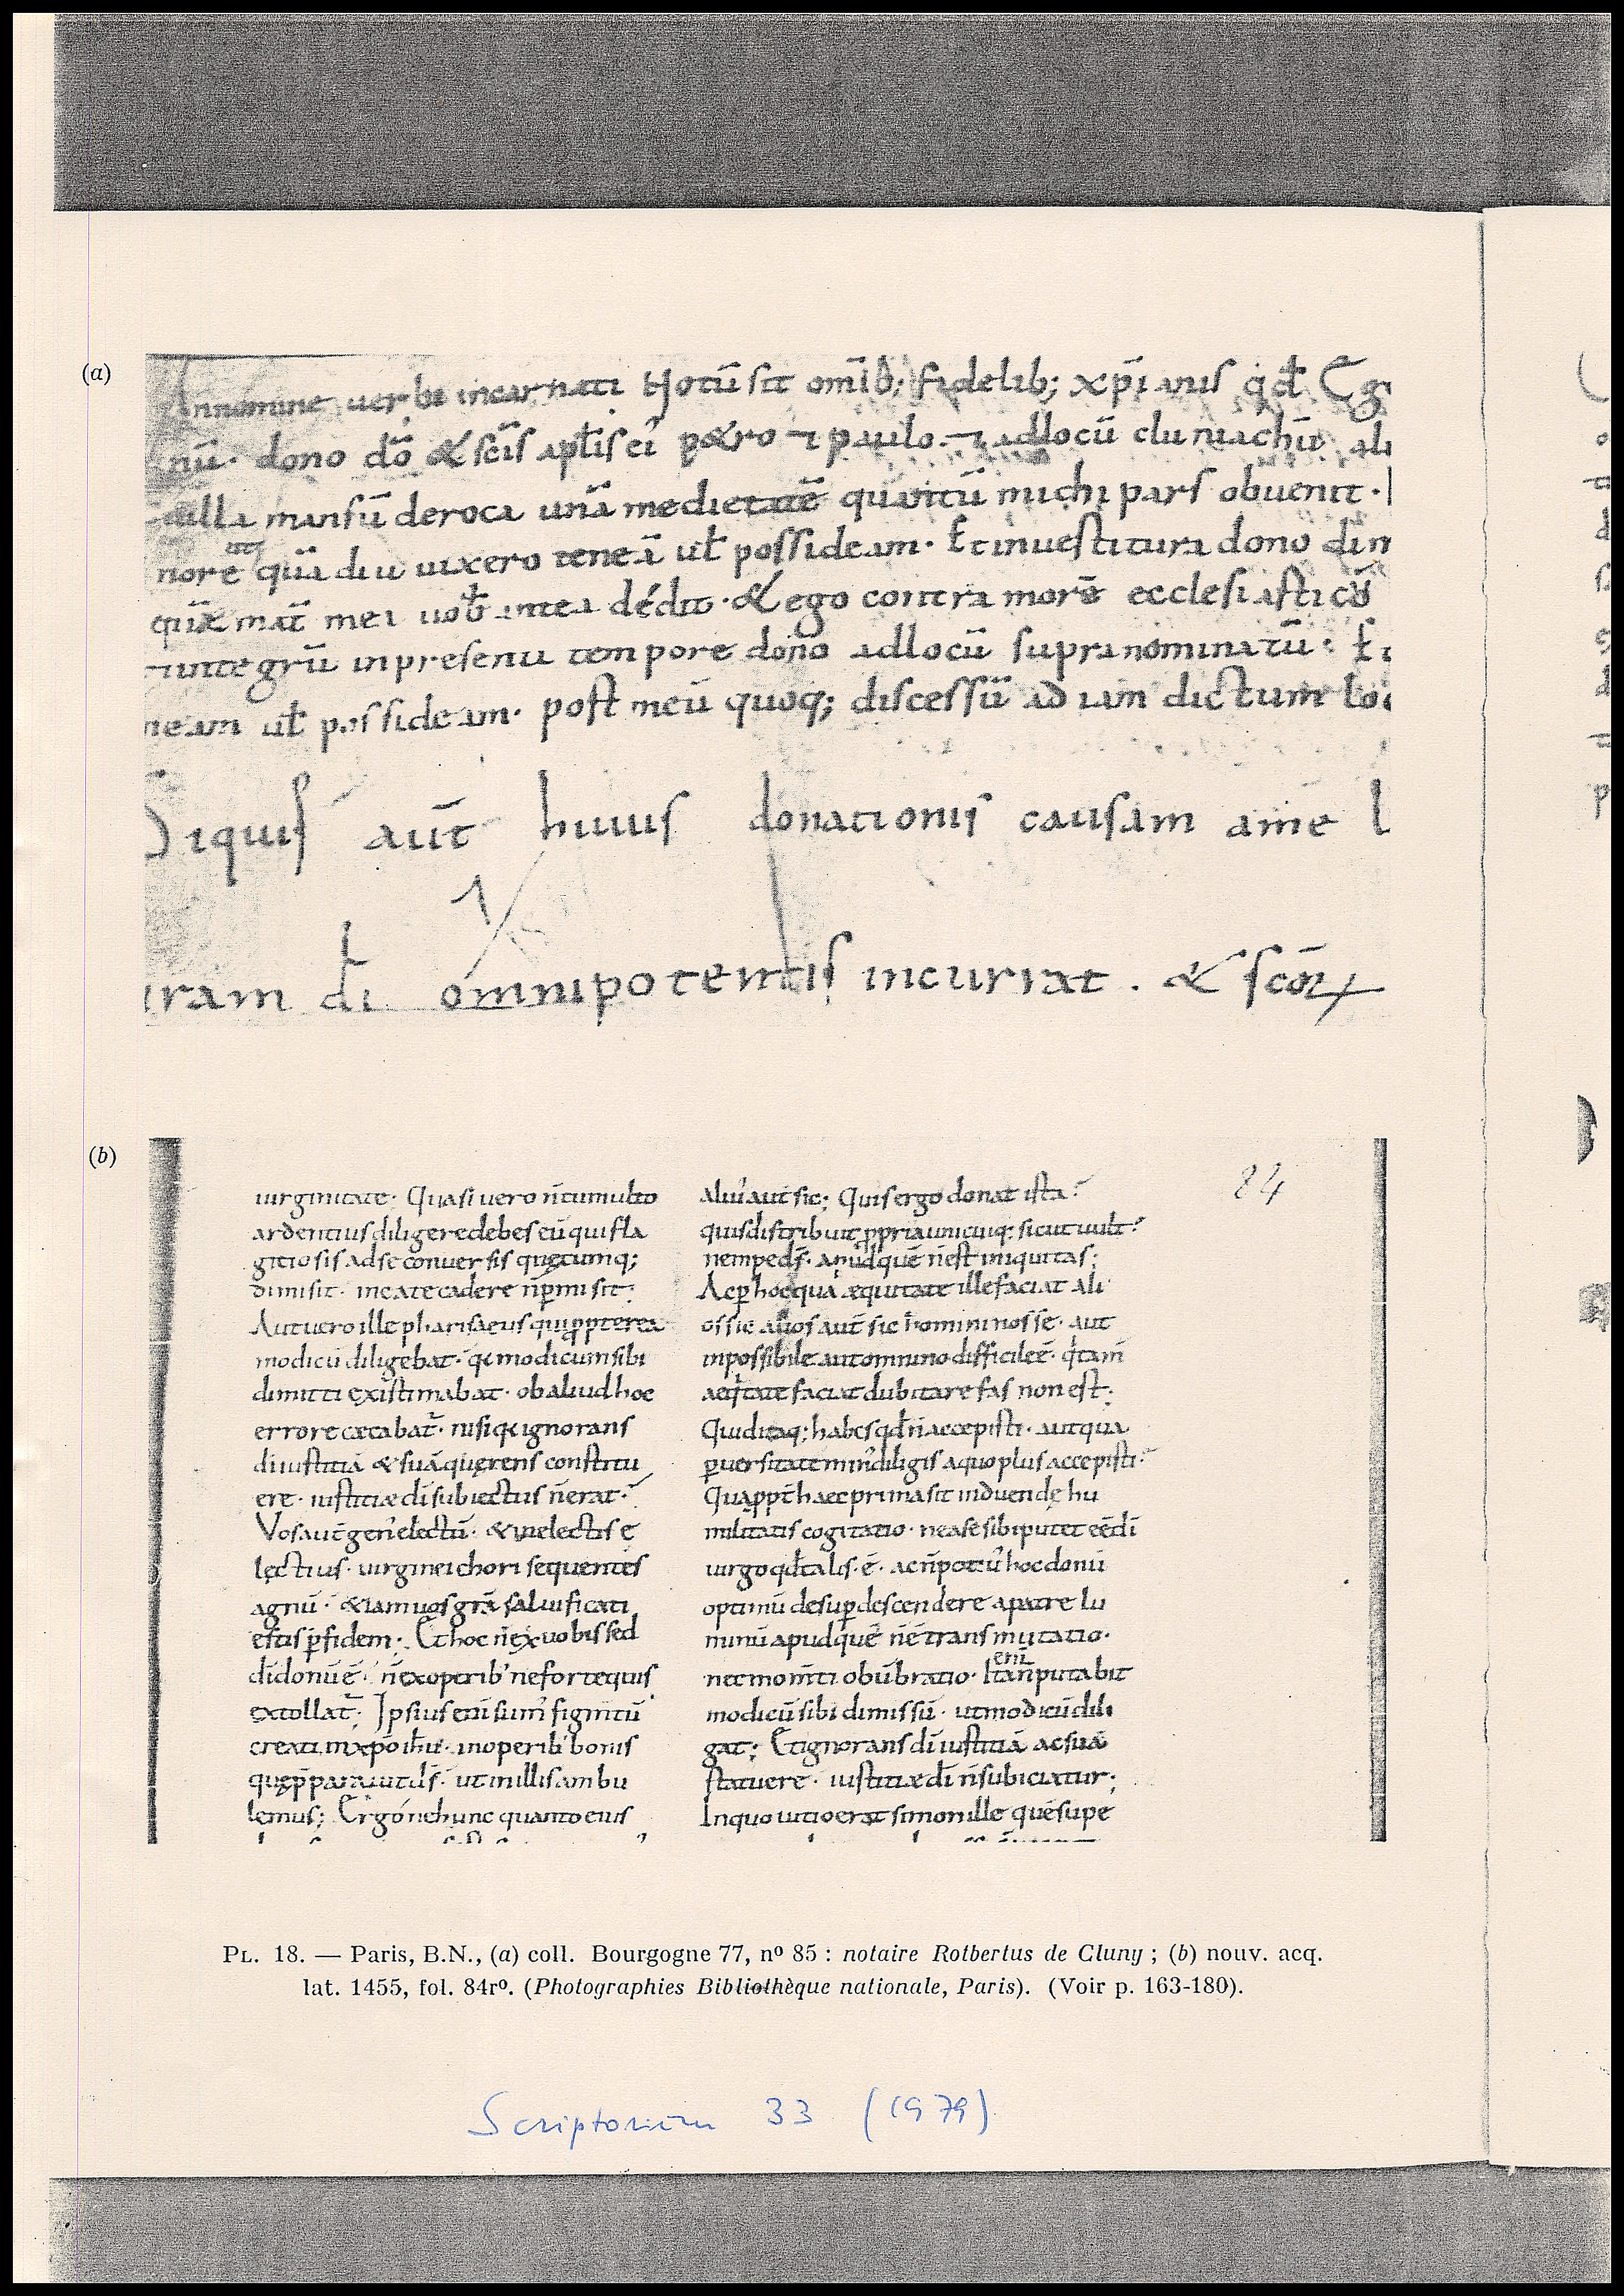 (a)
Innomine uerbi incarnati Notū sit om̄ib; fidelib; xp̄ianis qđ Ego
nū. dono dō & sc̄is apl̄is ei petro ⁊ paulo. ⁊ adlocū cluniachū
uilla mansū deroca unā medietatē quantū michi pars obuenit.
nore quādiu uixero teneā uł possideam. Et inuestitura dono
mat̄ mei uob antea dedit. & ego contra morē ecclesiasticū
⁊ integrū inpresenti tempore dono adlocū supranominatū.
neam uł possideam. post meū quoq; discessū ad iam dictum loc
Siquis aūt huius donationis causam
iram dī omnipotentis incurrat. & scōꝝ
(b)
84
uirginitate. Quasi uero n̄ tumulto
ardentius diligere debes eū qui fla
gitiosis adse conuersis quęcumq;
dimisit. ineate cadere n̄ p̄misit.
Aut uero ille pharisaeus qui ꝓpterea
modicū diligebat. qꝫ modicum sibi
dimitti existimabat. ob aliud hoc
errore cęcabat̄. nisi qꝫ ignorans
dī iustitiā & suā quęrens constitu
ere. iustitiæ dī subiectus n̄ erat.
Vos aūt gen' electū. & inelectis e
lectius. uirginei chori sequentes
agnū. & iam uos grā saluificati
estis p̄ fidem. Et hoc n̄ ex uobis sed
dī donū ē. n̄ ex operib' ne forte quis
extollat̄. Ipsius eni sum' figmtū
creati inxp̄o ih̄u. in operib' bonis
ut in illis ambu
lemus; Ergóne hunc quanto eius
aliu' aut sic; Quis ergo donat ista?
quis distribuit ꝓpria unicuiq; sicut uult?
nempe dś. apud quē n̄ est iniquitas;
Ac p̄ hoc qua æquitate ille faciat ali
os sic alios aut̄ sic homini nosse. aut
inpossibile aut omnino difficile ē.
aeq̇tate faciat dubitare fas non est.
Quid itaq; habes qđ n̄ accepisti. aut qua
ꝑuersitate min' diligis a quo plus accepisti?
Quaꝓpt̄ haec prima sit induendę hu
militatis cogitatio. ne a se sibi putet eē dī
uirgo qđ talis ē. ac n̄ poti' hoc donū
optimū desuꝑ descendere apatre lu
minū apud quē n̄ ē transmutatio.
nec momti obūbratio. Ita eni n̄ putabit
modicū sibi dimissū. ut modicū dili
gat; Et ignorans dī iustitiā ac suā
statuere. iustitiæ dī n̄ subiciatur;
In quo uitio erat simon ille quē supe
PL. 18. — Paris, B.N., (a) coll. Bourgogne 77, nº 85 : notaire Rotbertus de Cluny ; (b) nouv. acq.
lat. 1455, fol. 84rº. (Photographies Bibliothèque nationale, Paris). (Voir p. 163-180).
Scriptorium 33 (1979)